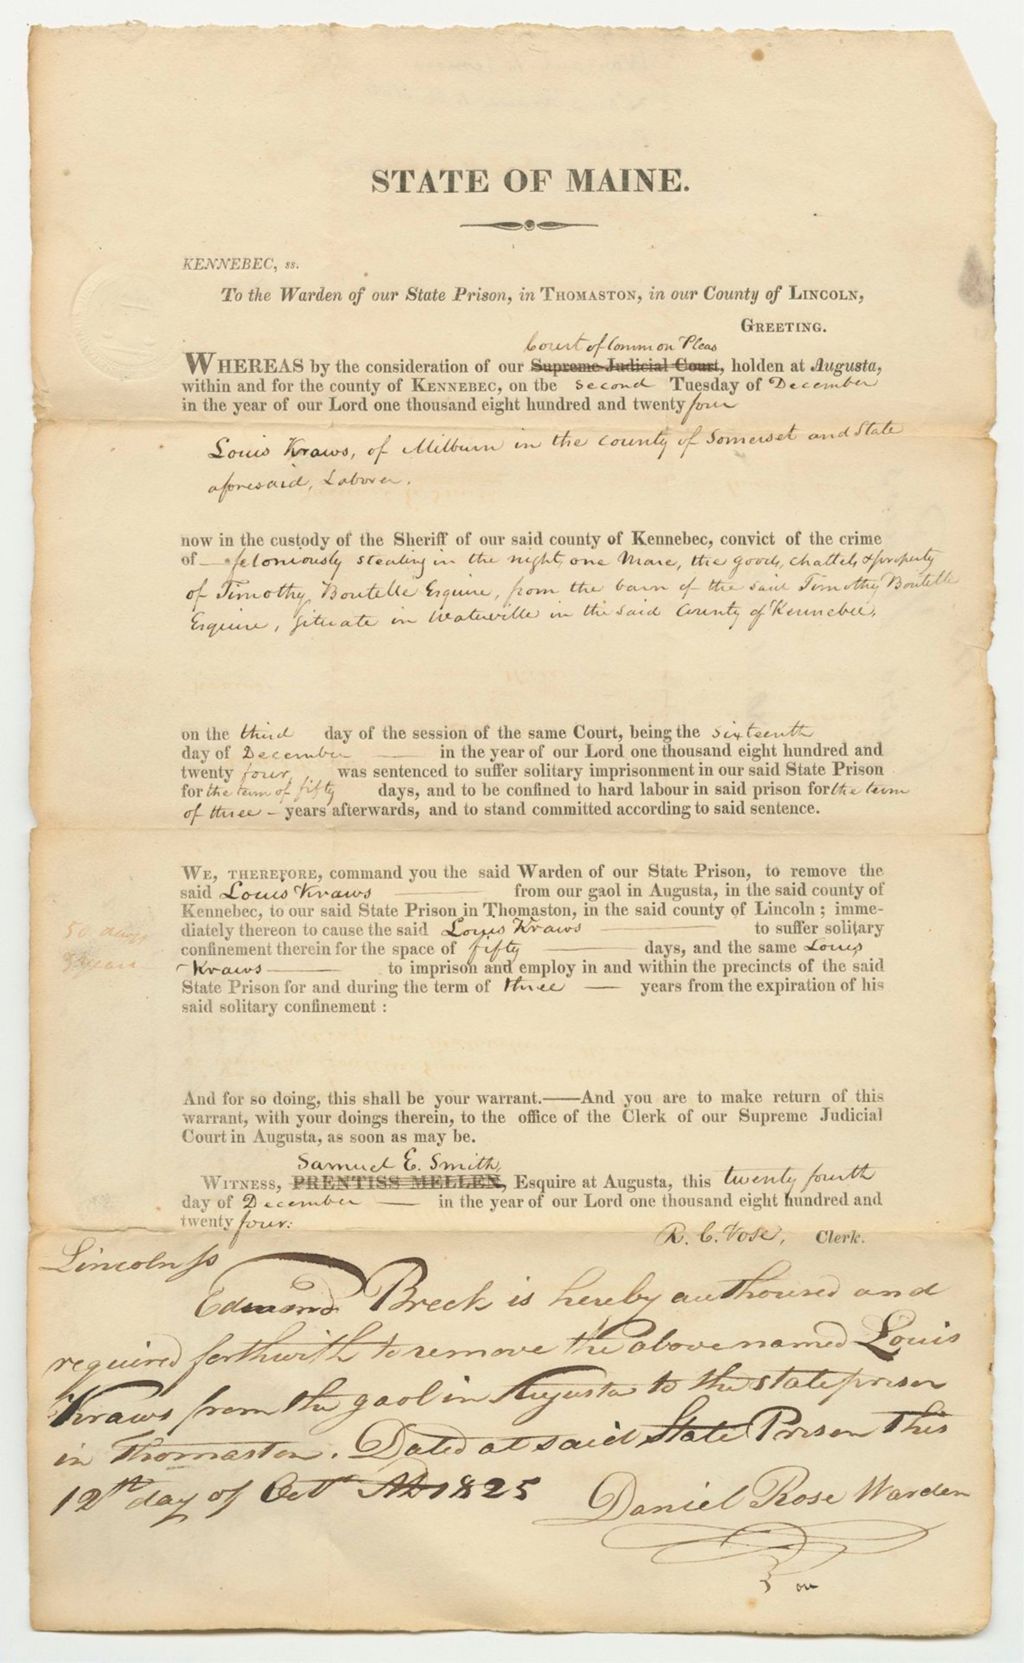 STATE OF MAINE.
KENNEBEC, ss.
To the Warden of our State Prison, in THOMASTON, in our County of LINCOLN,
GREETING.
Court of Common Pleas
WHEREAS by the consideration of our Supreme Judicial Court, holden at Augusta,
within and for the county of KENNEBEC, on the second Tuesday of December
in the year of our Lord one thousand eight hundred and twenty four
Louis Kraws, of Milburn in the county of Somerset and State
aforesaid, Laborer.
now in the custody of the Sheriff of our said county of Kennebec, convict of the crime
of — feloniously stealing in the night, one Mare, the goods, chattels & property
of Timothy Boutelle Esquire, from the barn of the said Timothy Boutelle
Esquire, situate in Waterville in the said County of Kennebec,
on the third day of the session of the same Court, being the sixteenth
day of December — in the year of our Lord one thousand eight hundred and
twenty four, was sentenced to suffer solitary imprisonment in our said State Prison
for the term of fifty days, and to be confined to hard labour in said prison for the term
of three — years afterwards, and to stand committed according to said sentence.
WE, THEREFORE, command you the said Warden of our State Prison, to remove the
said Louis Kraws — from our gaol in Augusta, in the said county of
Kennebec, to our said State Prison in Thomaston, in the said county of Lincoln; imme-
50 days
diately thereon to cause the said Louis Kraws — to suffer solitary
confinement therein for the space of fifty — days, and the same Louis
3 years
Kraws — to imprison and employ in and within the precincts of the said
State Prison for and during the term of three — years from the expiration of his
said solitary confinement:
And for so doing, this shall be your warrant.—And you are to make return of this
warrant, with your doings therein, to the office of the Clerk of our Supreme Judicial
Court in Augusta, as soon as may be.
Samuel E. Smith,
WITNESS, PRENTISS MELLEN, Esquire at Augusta, this twenty fourth
day of December — in the year of our Lord one thousand eight hundred and
twenty four:
R. C. Vose, Clerk.
Lincoln ss
Edmund Breck is hereby authorised and
required forthwith to remove the above named Louis
Kraws from the gaol in Augusta to the state prison
in Thomaston. Dated at said State Prison this
12th day of Oct. AD 1825
Daniel Rose Warden